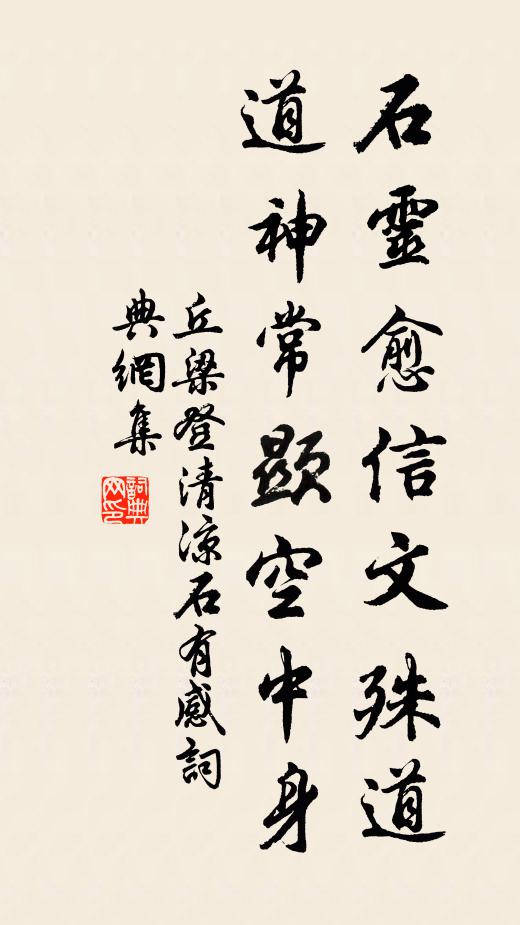 石靈愈信文殊道
道神常顯空中身
丘梁登清涼石有感詞
典網集
詞典
网印